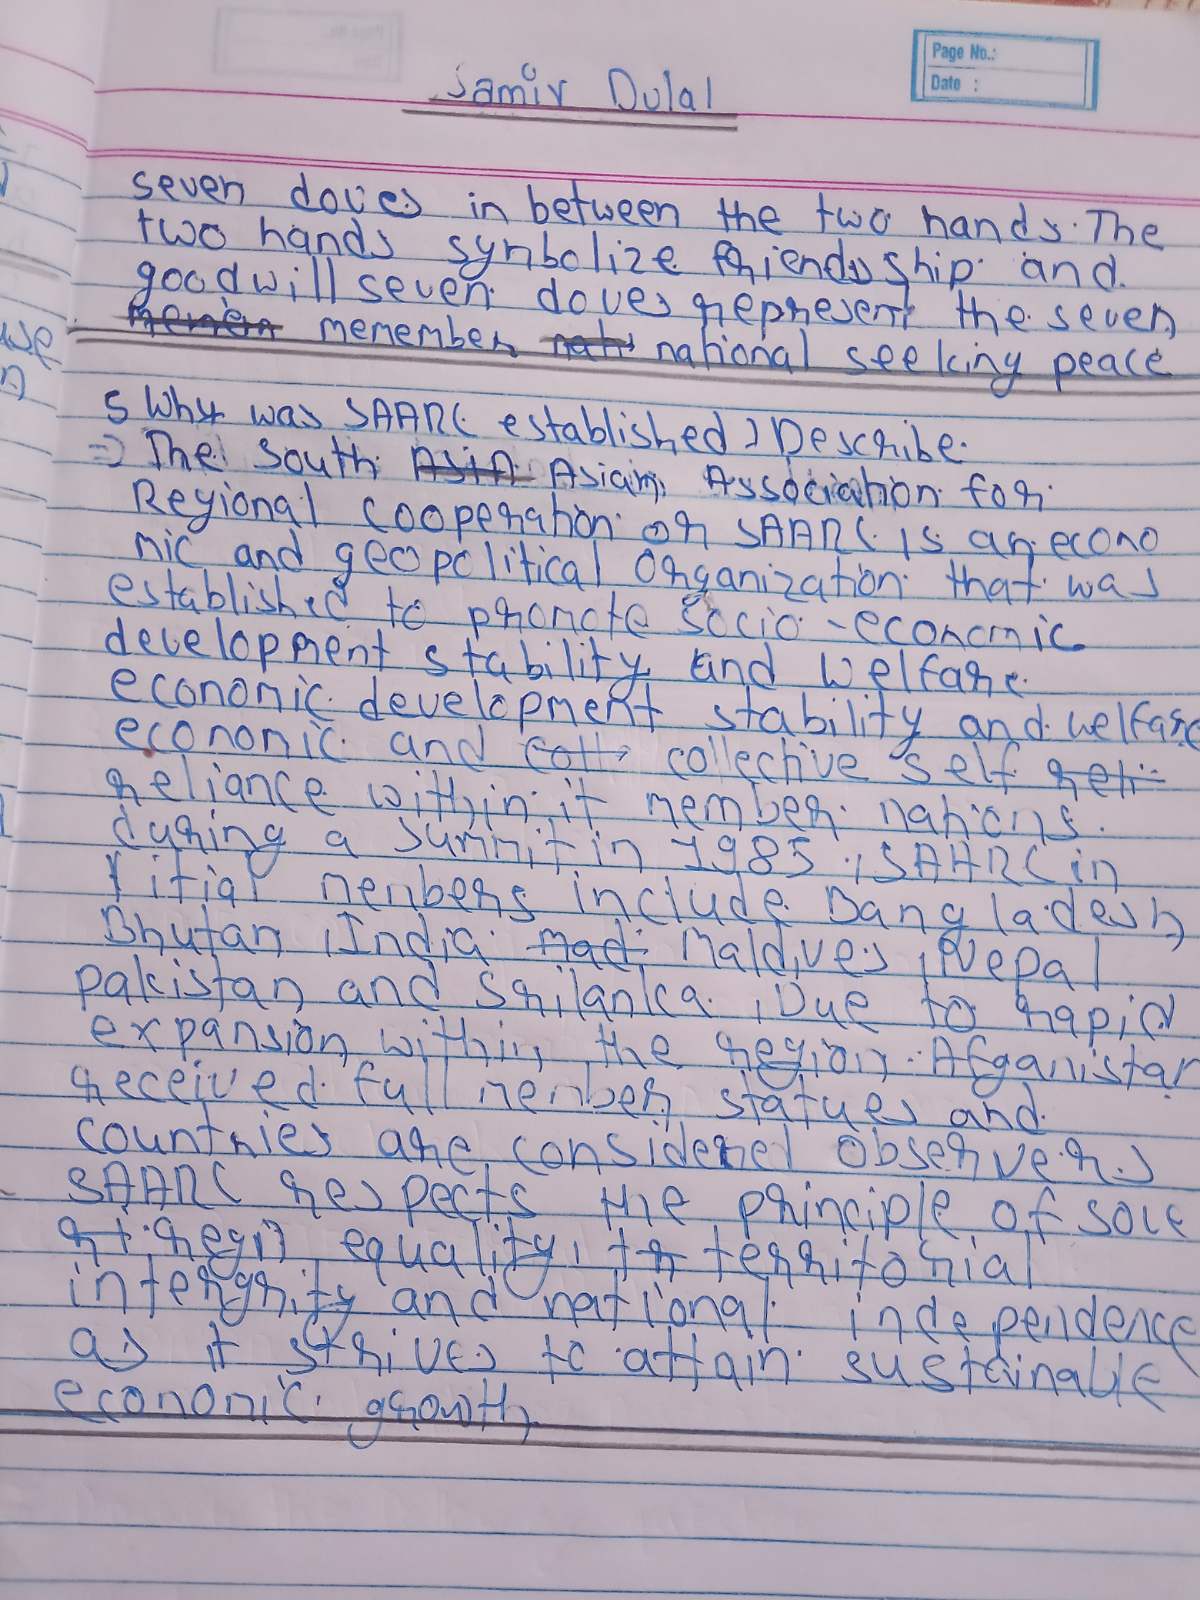 Page No.:
Date :
Samir Dulal
seven doves in between the two hands. The
two hands synbolize friendship and
goodwill seven doves represent the seven
memember national seeking peace
5 Why was SAARC established? Describe.
=> The South Asian Association for
Regional cooperation or SAARC is an econo
mic and geopolitical Organization that was
established to promote Socio-economic
development stability and welfare
economic development stability and welfare
economic and collective self
reliance within it member nations.
during a summit in 1985, SAARC in
itial menbers include Bangladesh,
Bhutan, India Maldives, Nepal
pakistan and Srilanka. Due to rapid
expansion within the region. Afganistan
received full menber statues and
countries are considered observers
SAARC respects the principle of sove
equality, territorial
intergrity and national independence
as it strives to attain sustainable
economic growth